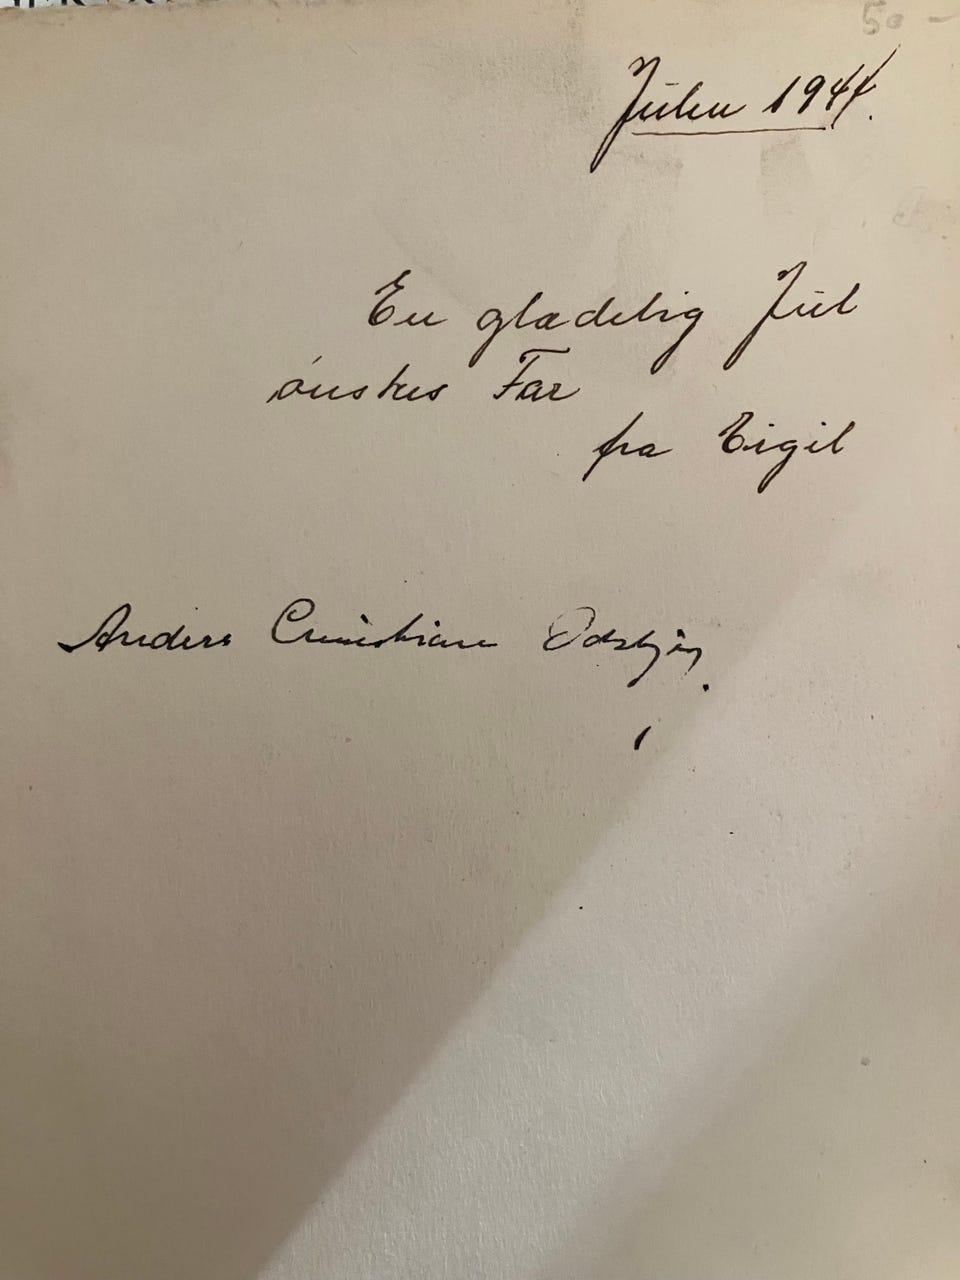 50 -
Julen 1944.
En glædelig Jul
ønskes Far
fra Eigil
Anders Christian